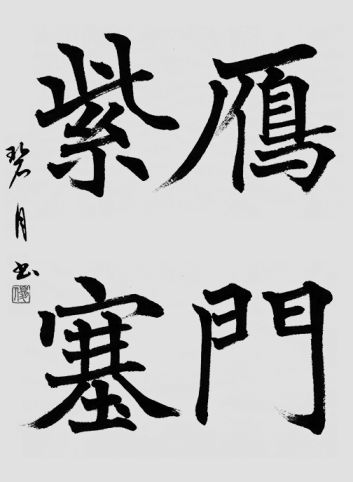 鴈門
紫塞
碧月书